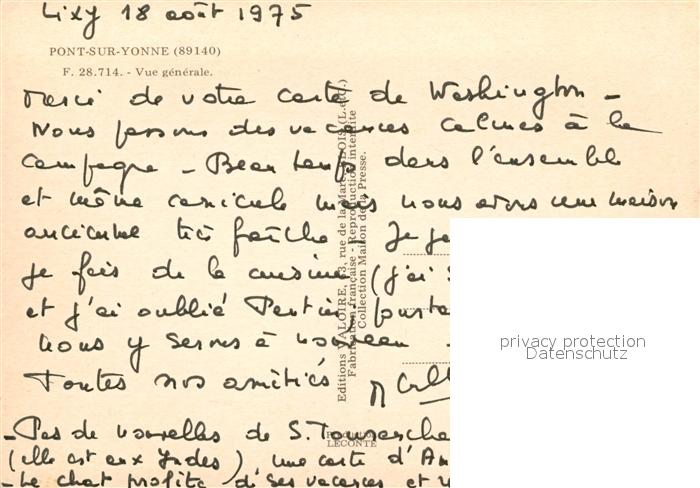 Lixy 18 août 1975
PONT-SUR-YONNE (89140)
F. 28.714. - Vue générale.
Merci de votre carte de Washington -
Nous passons des vacances calmes à la
campagne - Beau temps dans l'ensemble
et même canicule mais nous avons une maison
ancienne très fraîche. Je
je fais de la cuisine (j'ai
et j'ai oublié Pantin
nous y serons à nouveau
Toutes nos amitiés
- Pas de nouvelles de S.
(elle est aux Indes) une carte d'
- Le chat profite de ses vacances et
Editions VALOIRE, 13, rue de la
Fabrication française - Reproduction interdite
Collection Maison de la Presse.
LECONTE
privacy protection
Datenschutz